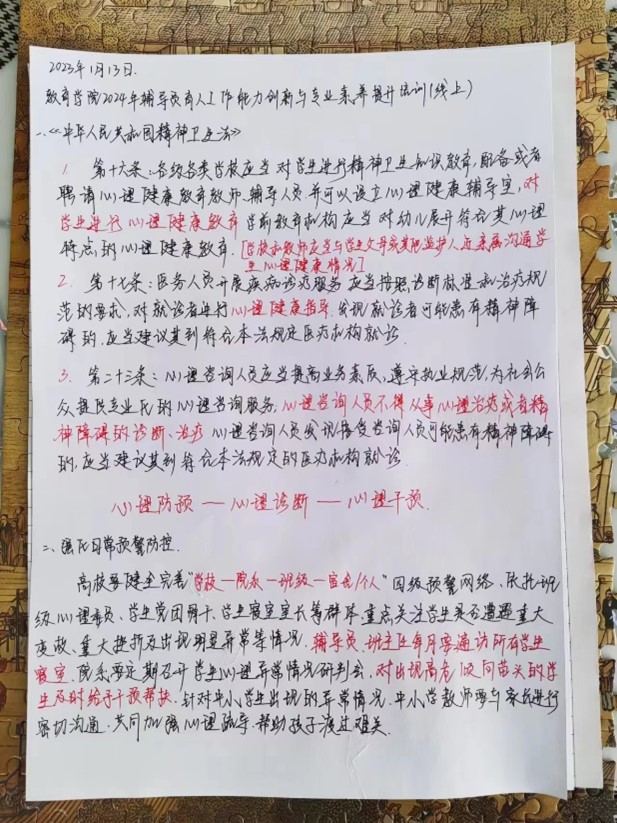 2023年1月13日.
教育学院2024年辅导员育人工作能力创新与专业素养提升培训(线上)
一、《中华人民共和国精神卫生法》
1. 第十六条:各级各类学校应当对学生进行精神卫生知识教育,配备或者
聘请心理健康教育教师、辅导人员,并可以设立心理健康辅导室,对
学生进行心理健康教育.学前教育机构应当对幼儿展开符合其心理
特点的心理健康教育.[学校和教师应当与学生父母或其他监护人近亲属沟通学
生心理健康情况]
2. 第十七条:医务人员开展疾病诊疗服务,应当按照诊断标准和治疗规
范的要求,对就诊者进行心理健康指导.发现就诊者可能患有精神障
碍的,应当建议其到符合本法规定医疗机构就诊.
3. 第二十三条:心理咨询人员应当提高业务素质,遵守执业规范,为社会公
众提供专业化的心理咨询服务,心理咨询人员不得从事心理治疗或者精
神障碍的诊断、治疗.心理咨询人员发现接受咨询人员可能患有精神障碍
的,应当建议其到符合本法规定的医疗机构就诊.
心理防预—心理诊断—心理干预.
二、强化日常预警防控.
高校要健全完善"学校—院系—班级—宿舍/个人"四级预警网络、依托班
级心理委员、学生党团骨干、学生寝室室长等群体.重点关注学生是否遭遇重大
变故、重大挫折及出现明显异常等情况.辅导员、班主任每月要遍访所有学生
寝室.院系要定期召开学生心理异常情况研判会,对出现高危倾向苗头的学
生及时给予干预帮扶.针对中小学生出现的异常情况.中小学教师要与家长进行
密切沟通.共同加强心理疏导.帮助孩子渡过难关.